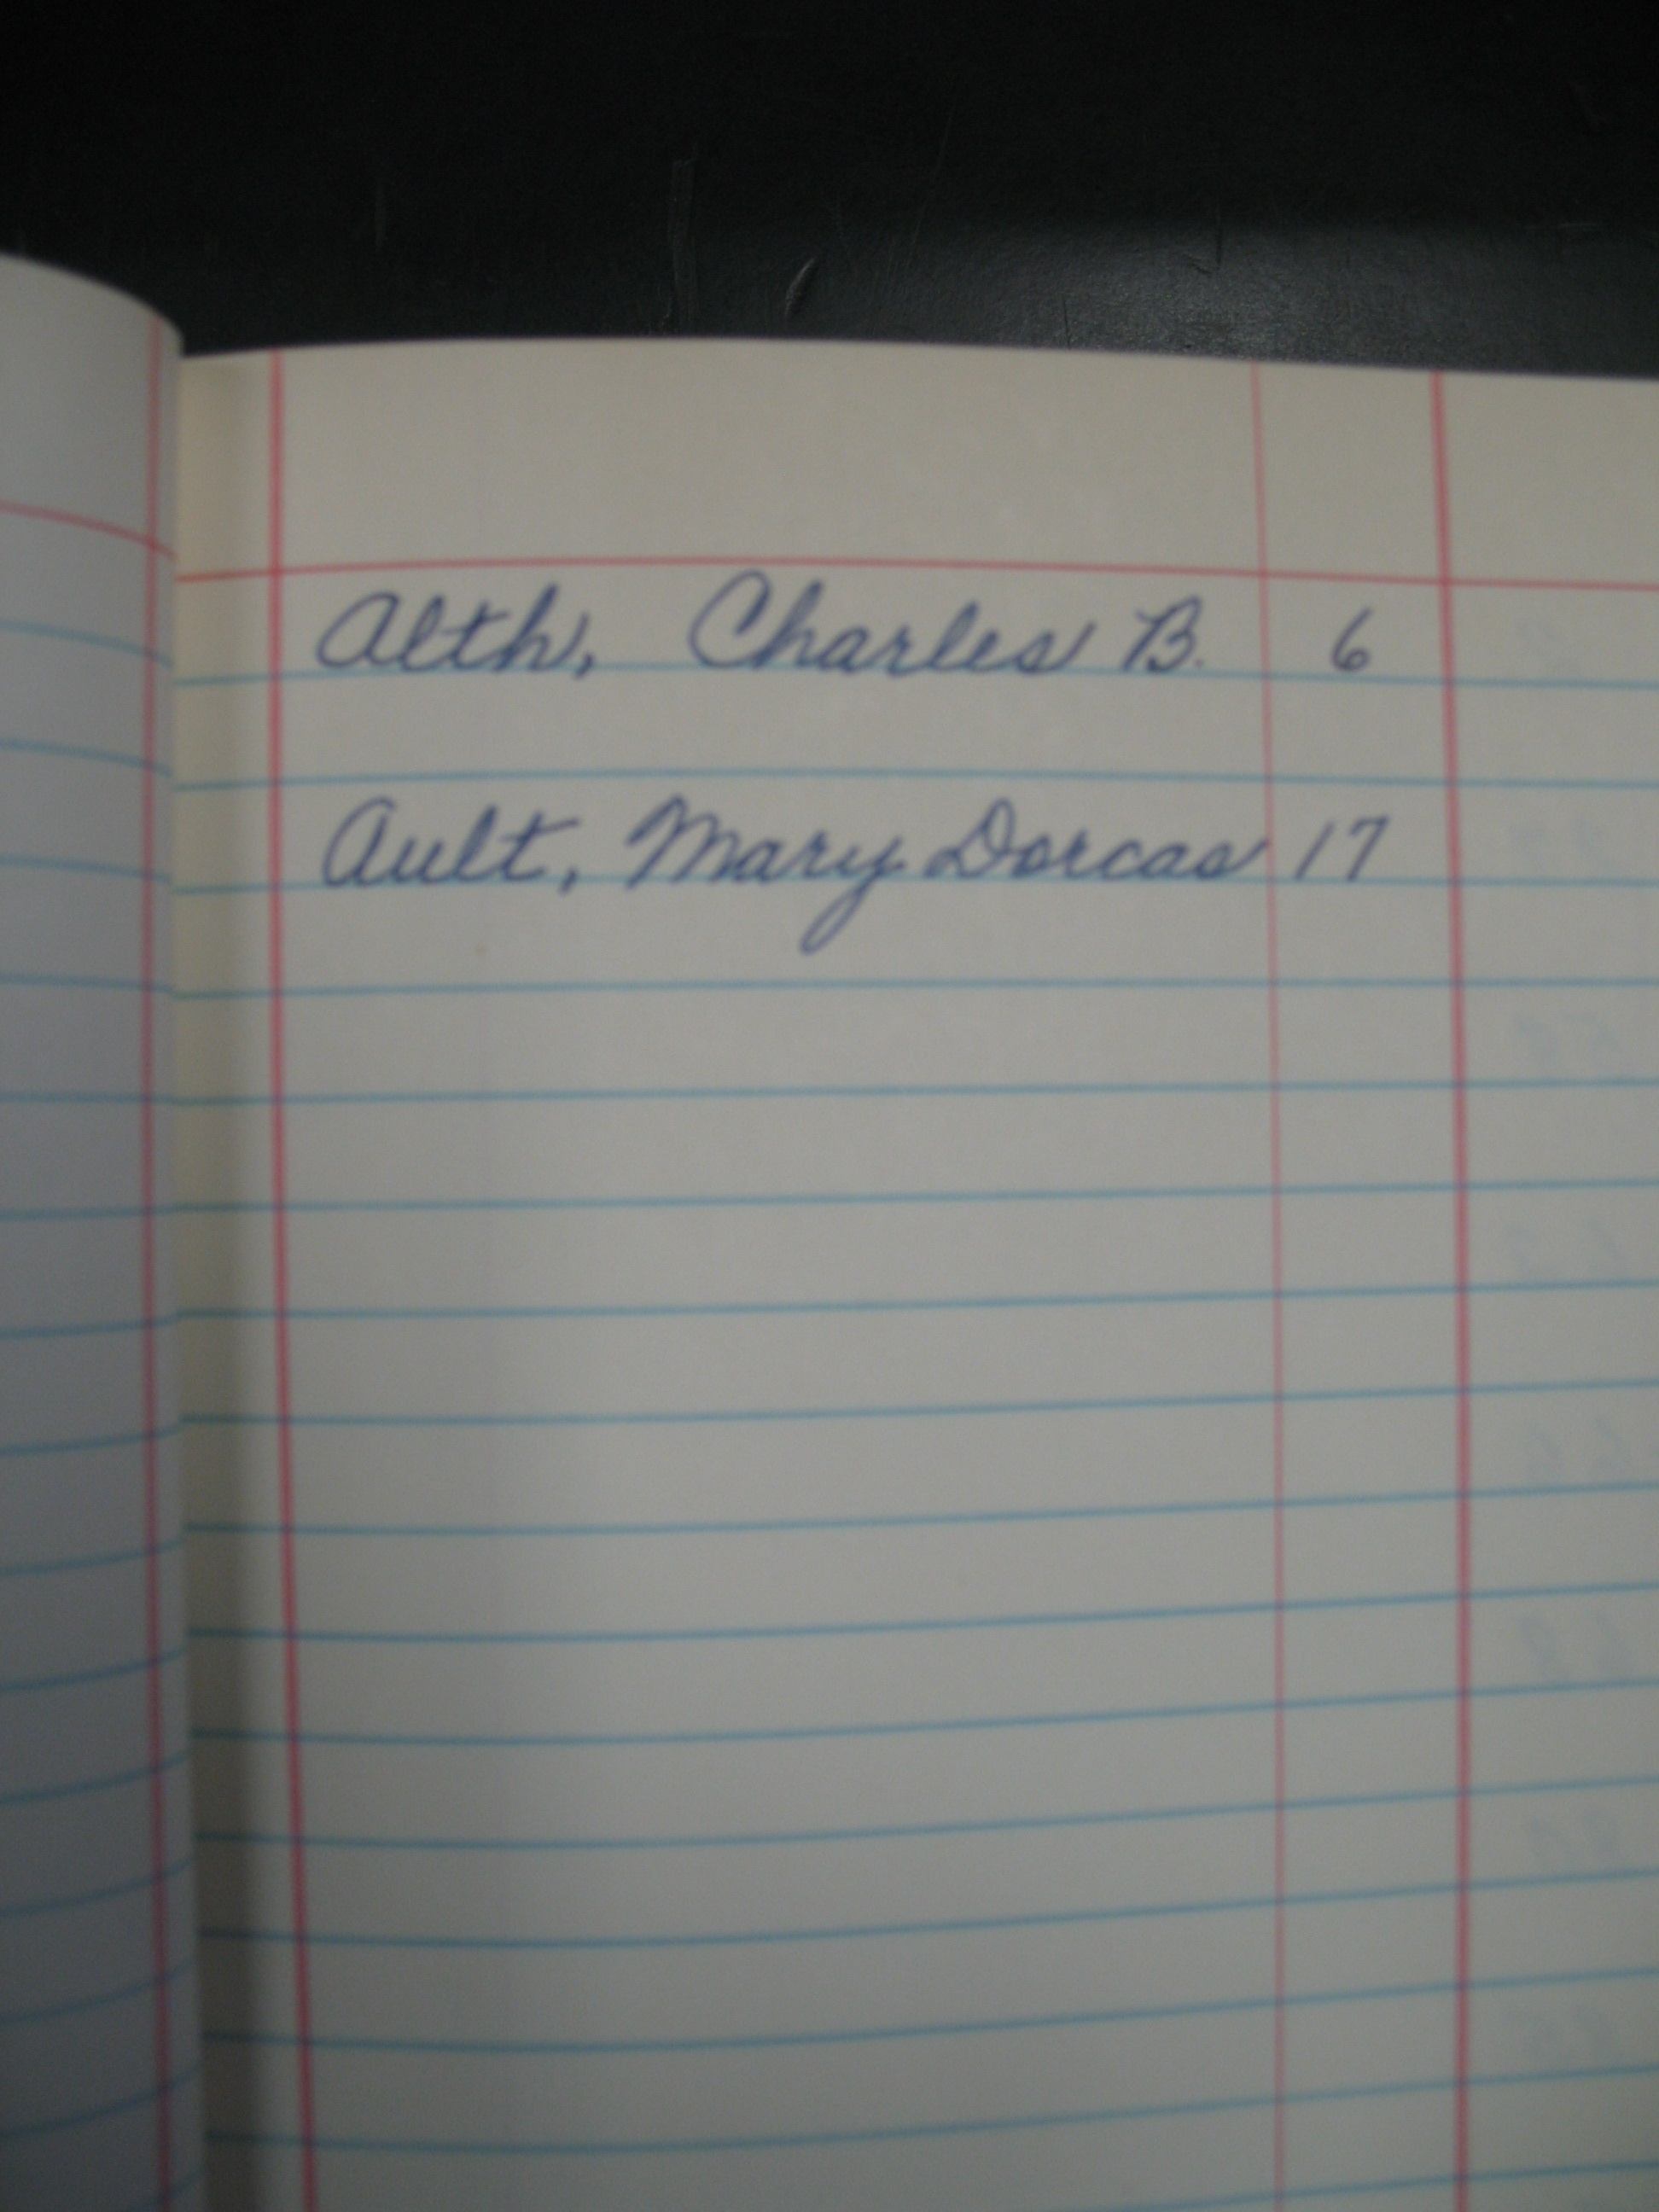 Alth, Charles B. 6
Ault, Mary Dorcas 17